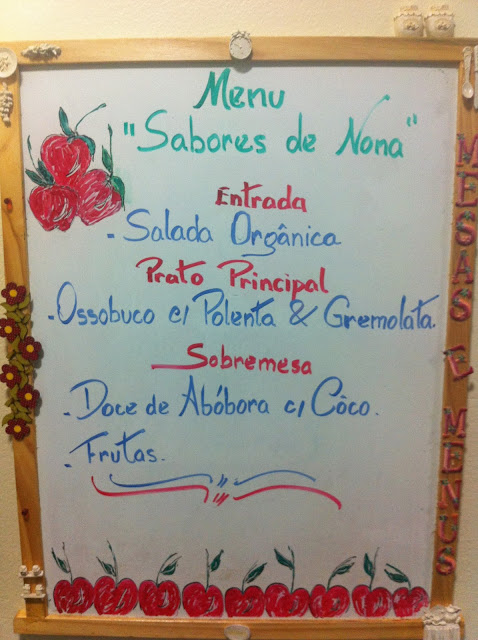 Menu
"Sabores de Nona"
Entrada
- Salada Orgânica
Prato Principal
- Ossobuco c/ Polenta & Gremolata.
Sobremesa
- Doce de Abóbora c/ Côco.
- Frutas.
MESAS E MENUS